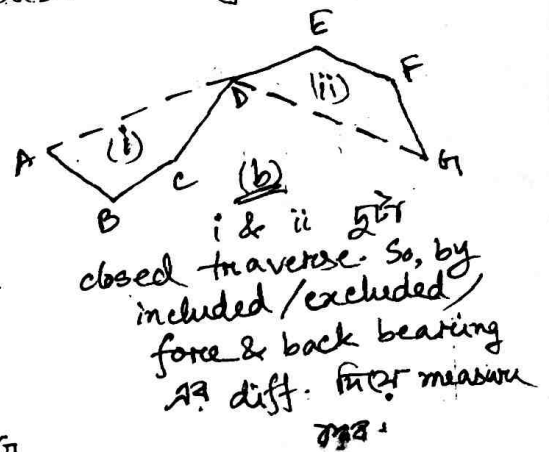 E
F
D
(ii)
A
(i)
G
C
B
(b)
i & ii দুটো
closed traverse. So, by
included/excluded/
fore & back bearing
এর diff. দিয়ে measure
করব।